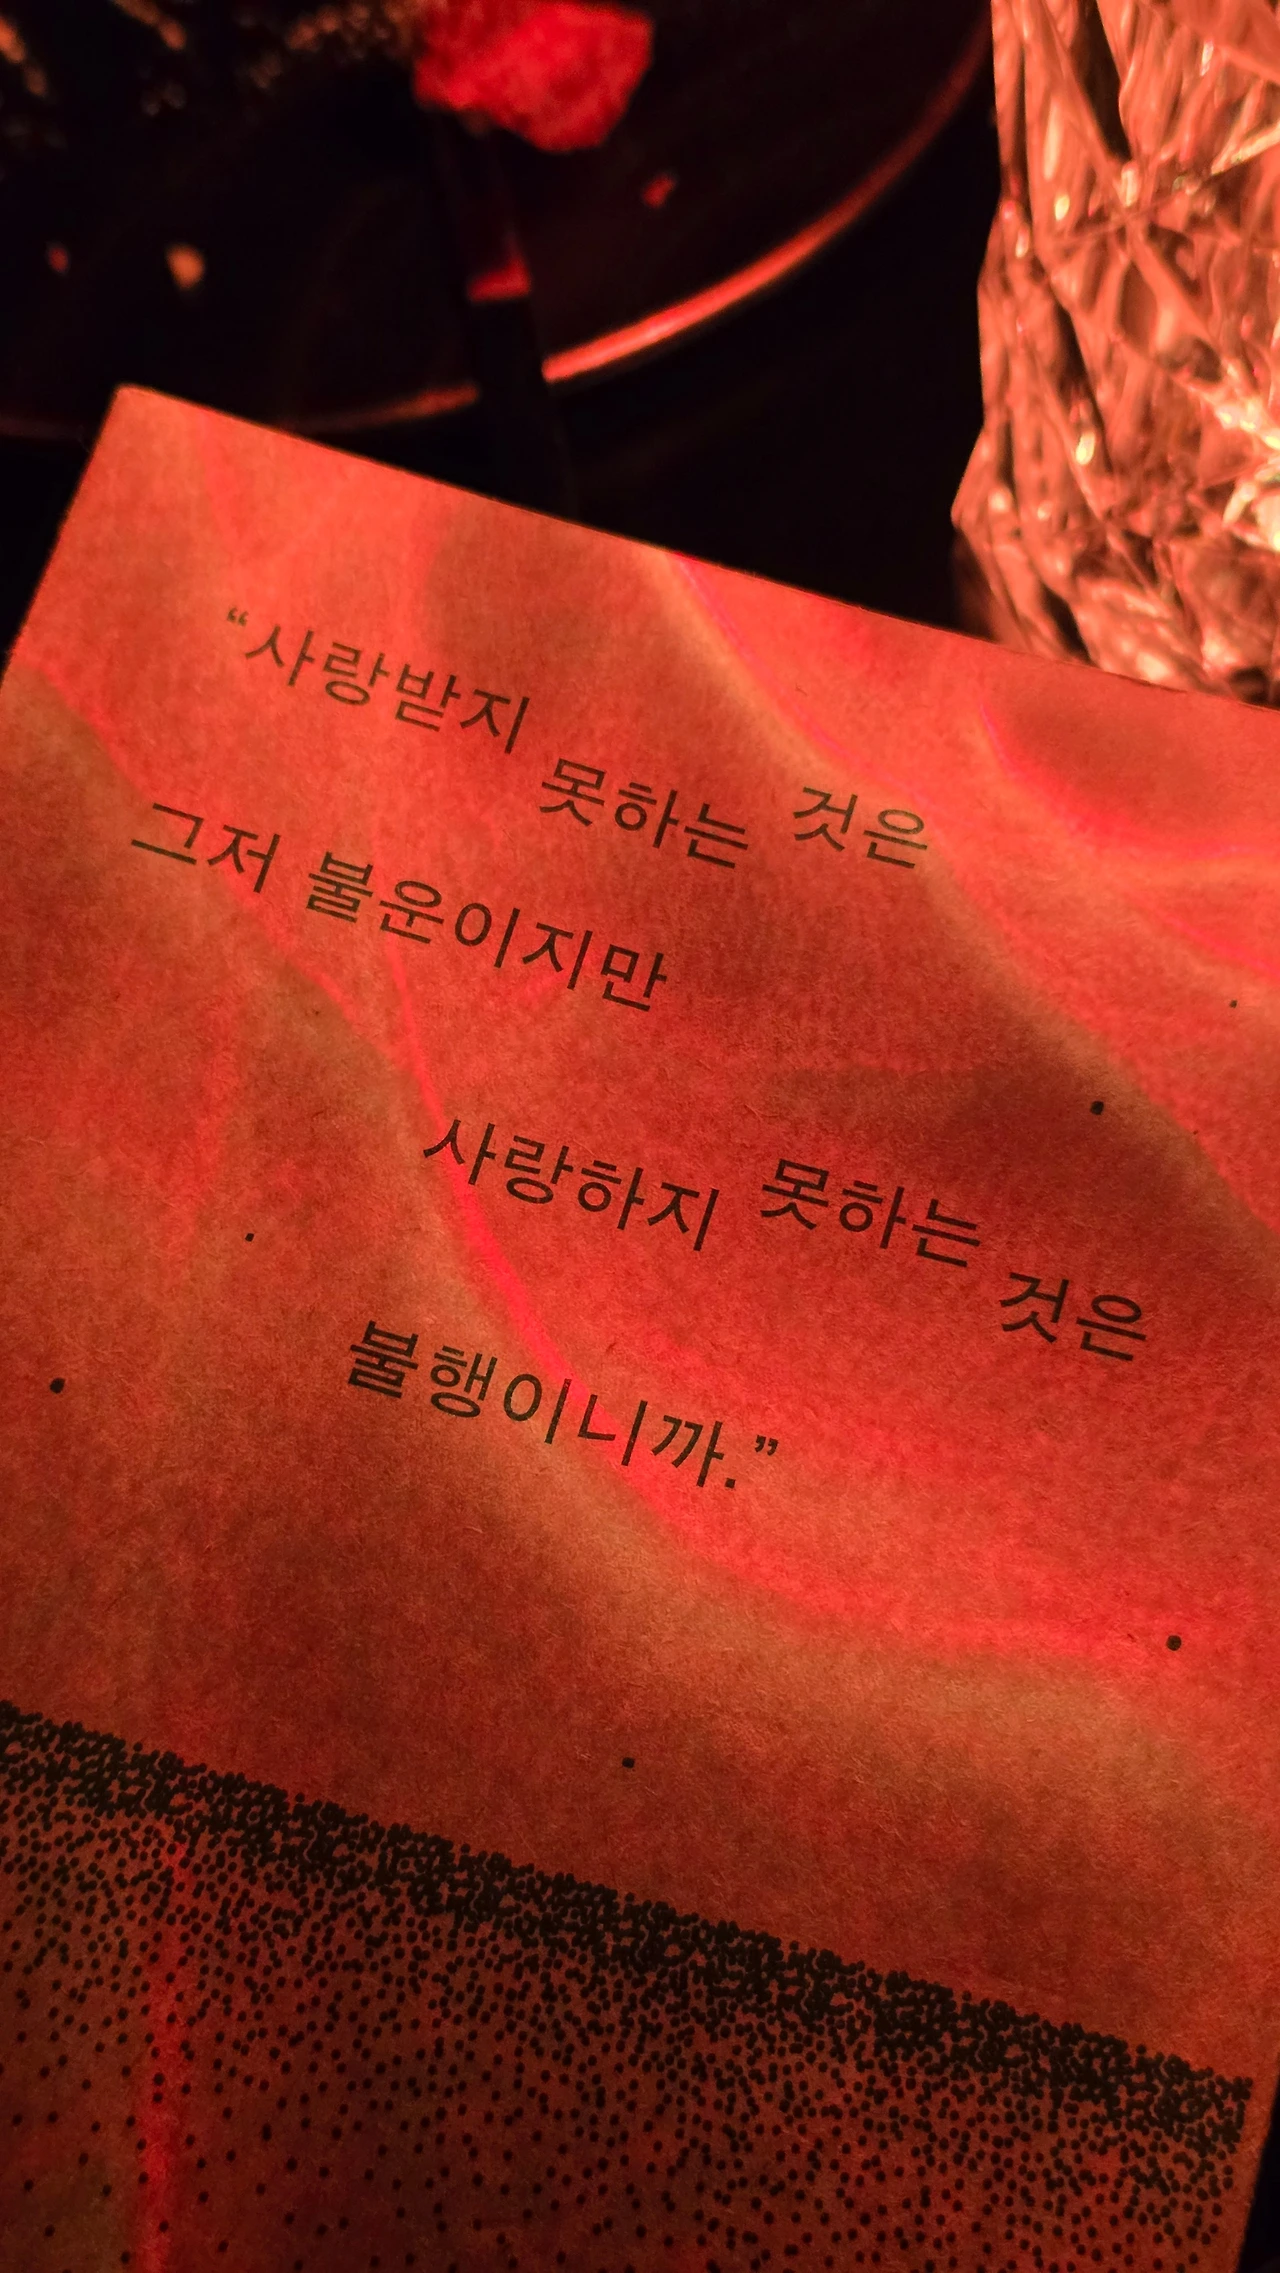 “사랑받지 못하는 것은
그저 불운이지만
사랑하지 못하는 것은
불행이니까.”